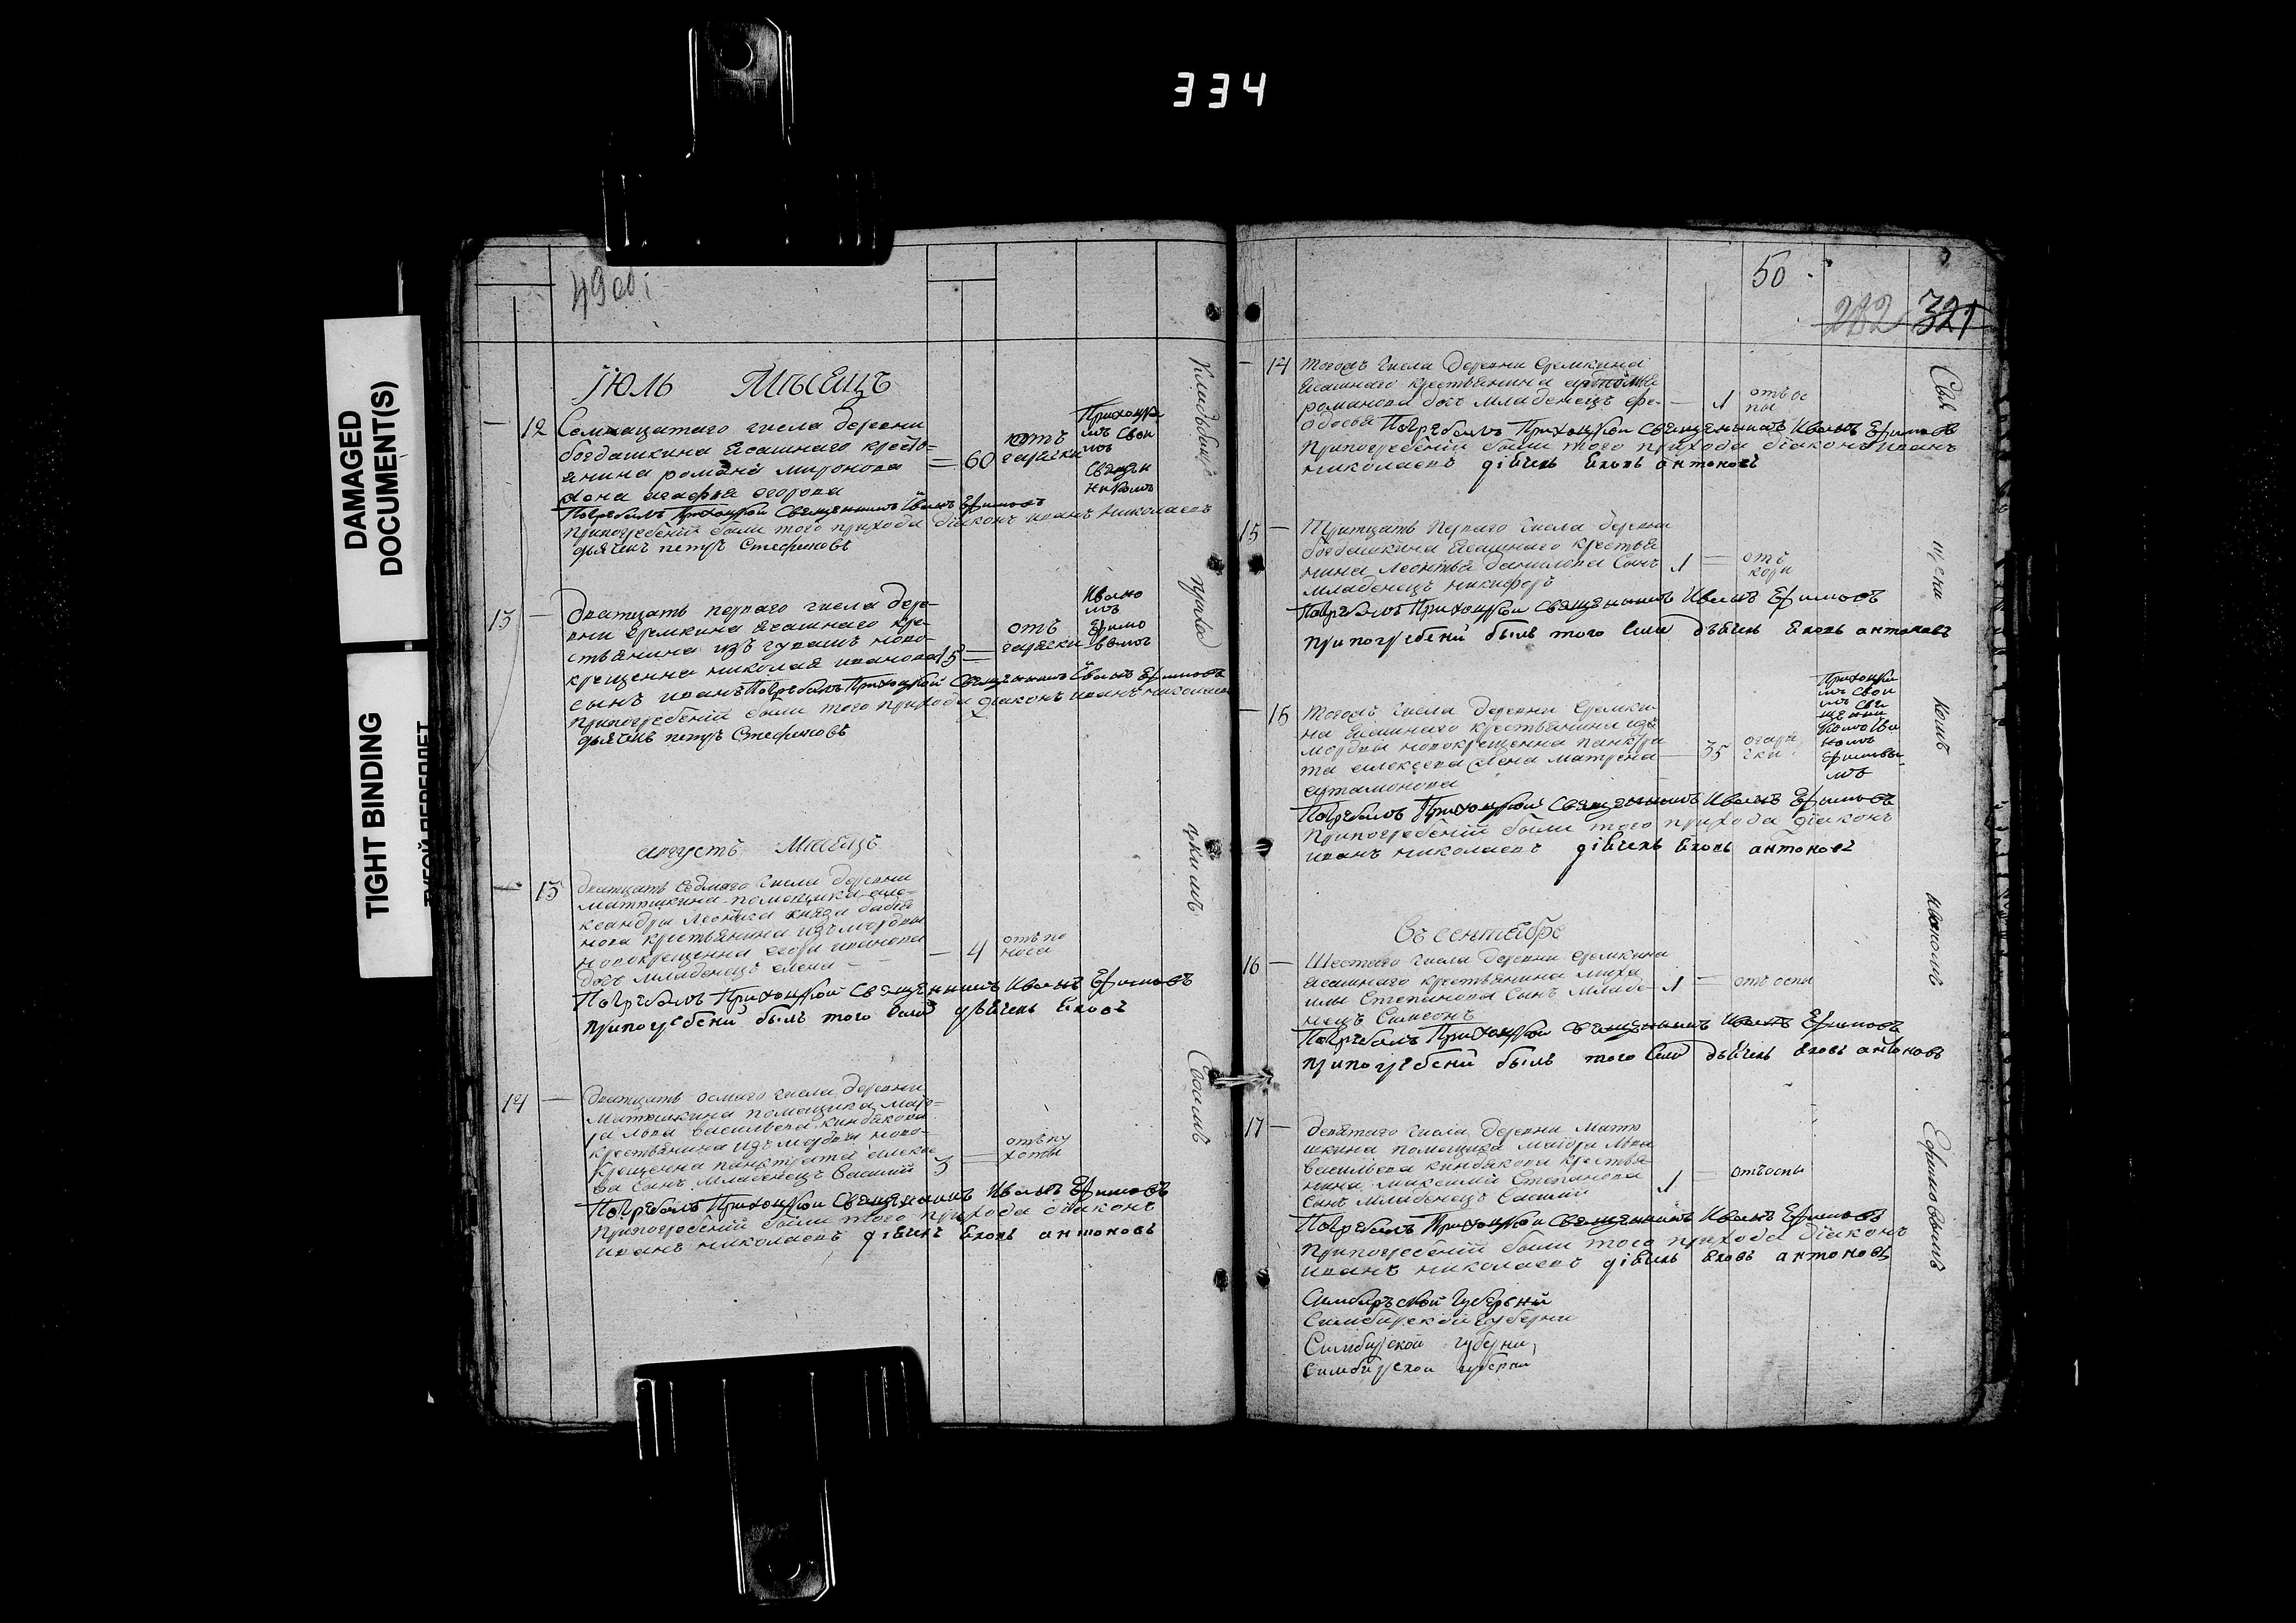 334
DAMAGED
DOCUMENT(S)
TIGHT BINDING
49 об:
Іюль Мѣсяцъ
12 Семнацатаго числа деревни
богдашкина ясашнаго кресть-
янина романа миронова
жена агафья егорова
60
отъ
гарячки
Приходцким
Священ
никомъ
Погребалъ Приходцкой Священникъ Иванъ Ефимовъ
Припогребеніи были того прихода діаконъ иванъ николаевъ
дьячекъ петръ Стефановъ
13 Дватцать перваго числа дере-
вни еремкина ясашнаго кре-
стьянина изъ чувашъ ново-
крещенна николая иванова
сынъ иванъ
15
отъ
гарячки
Ивано
мъ
Ефимо
вымъ
Погребалъ Приходцкой Священникъ Иванъ Ефимовъ
Припогребеніи были того прихода діаконъ иванъ николаевъ
дьячекъ петръ Стефановъ
августъ Мѣсяцъ
13 Дватцать седмаго числа деревни
матюшкина помещика але-
ксандры князя
нова крестьянина изъ мордвы
новокрещенна егора иванова
дочь младенецъ елена
4
отъ по
носа
Погребалъ Приходцкой Священникъ Иванъ Ефимовъ
припогребени былъ того села дьячекъ Яковъ
14 Дватцать осмаго числа деревни
Матюшкина помещика маіо-
ра лва васильева киндякова
крестьянина изъ мордвы ново-
крещенна панкрата алексе
ва сынъ младенецъ Василий
3
Погребалъ Приходцкой Священникъ Иванъ Ефимовъ
Припогребеніи были того прихода діаконъ
иванъ николаевъ дячекъ Яковъ антоновъ
Кладбище
прихо
цкимъ
Своимъ
50
282 321
14 тогожъ числа деревни еремкина
ясашнаго крестьянина
романова дочь младенецъ фе-
одосья
1
отъ ос
пы
Погребалъ Приходцкой Священникъ Иванъ Ефимовъ
Припогребеніи были того прихода діаконъ иванъ
николаевъ дячекъ Яковъ антоновъ
15 Тритцать перваго числа деревни
богдашкина ясашнаго крестья
нина леонтья данилова сынъ
младенецъ никифоръ
1
отъ
кори
Погребалъ Приходцкой Священникъ Иванъ Ефимовъ
припогребени былъ того села дьячекъ Яковъ антоновъ
15 тогожъ числа деревни еремки
на ясашнаго крестьянина изъ
мордвы новокрещенна панкра
та алексеева жена матрена
артамонова
35
огаря
чки
Погребалъ Приходцкой Священникъ Иванъ Ефимовъ
Припогребеніи были того прихода діаконъ
иванъ николаевъ дячекъ Яковъ антоновъ
Въ сентябре
16 Шестаго числа деревни еремкина
ясашнаго крестьянина миха
илы Степанова сынъ младе-
нецъ Симеонъ
1
отъ оспы
Погребалъ Приходцкой Священникъ Иванъ Ефимовъ
припогребени былъ того села дьячекъ Яковъ антоновъ
17 Девятаго числа деревни Матю
шкина помещика маіора лва
васильева киндякова крестья
нина максима Степанова
сынъ младенецъ василий
1
отъ оспы
Погребалъ Приходцкой Священникъ Иванъ Ефимовъ
Припогребеніи были того прихода діаконъ
иванъ николаевъ дячекъ Яковъ антоновъ
Симбирской Губерніи
Симбирской губерни
Симбирской губерни,
симбирской губерни
Свя
щени
комъ
Иваномъ
Ефимовымъ